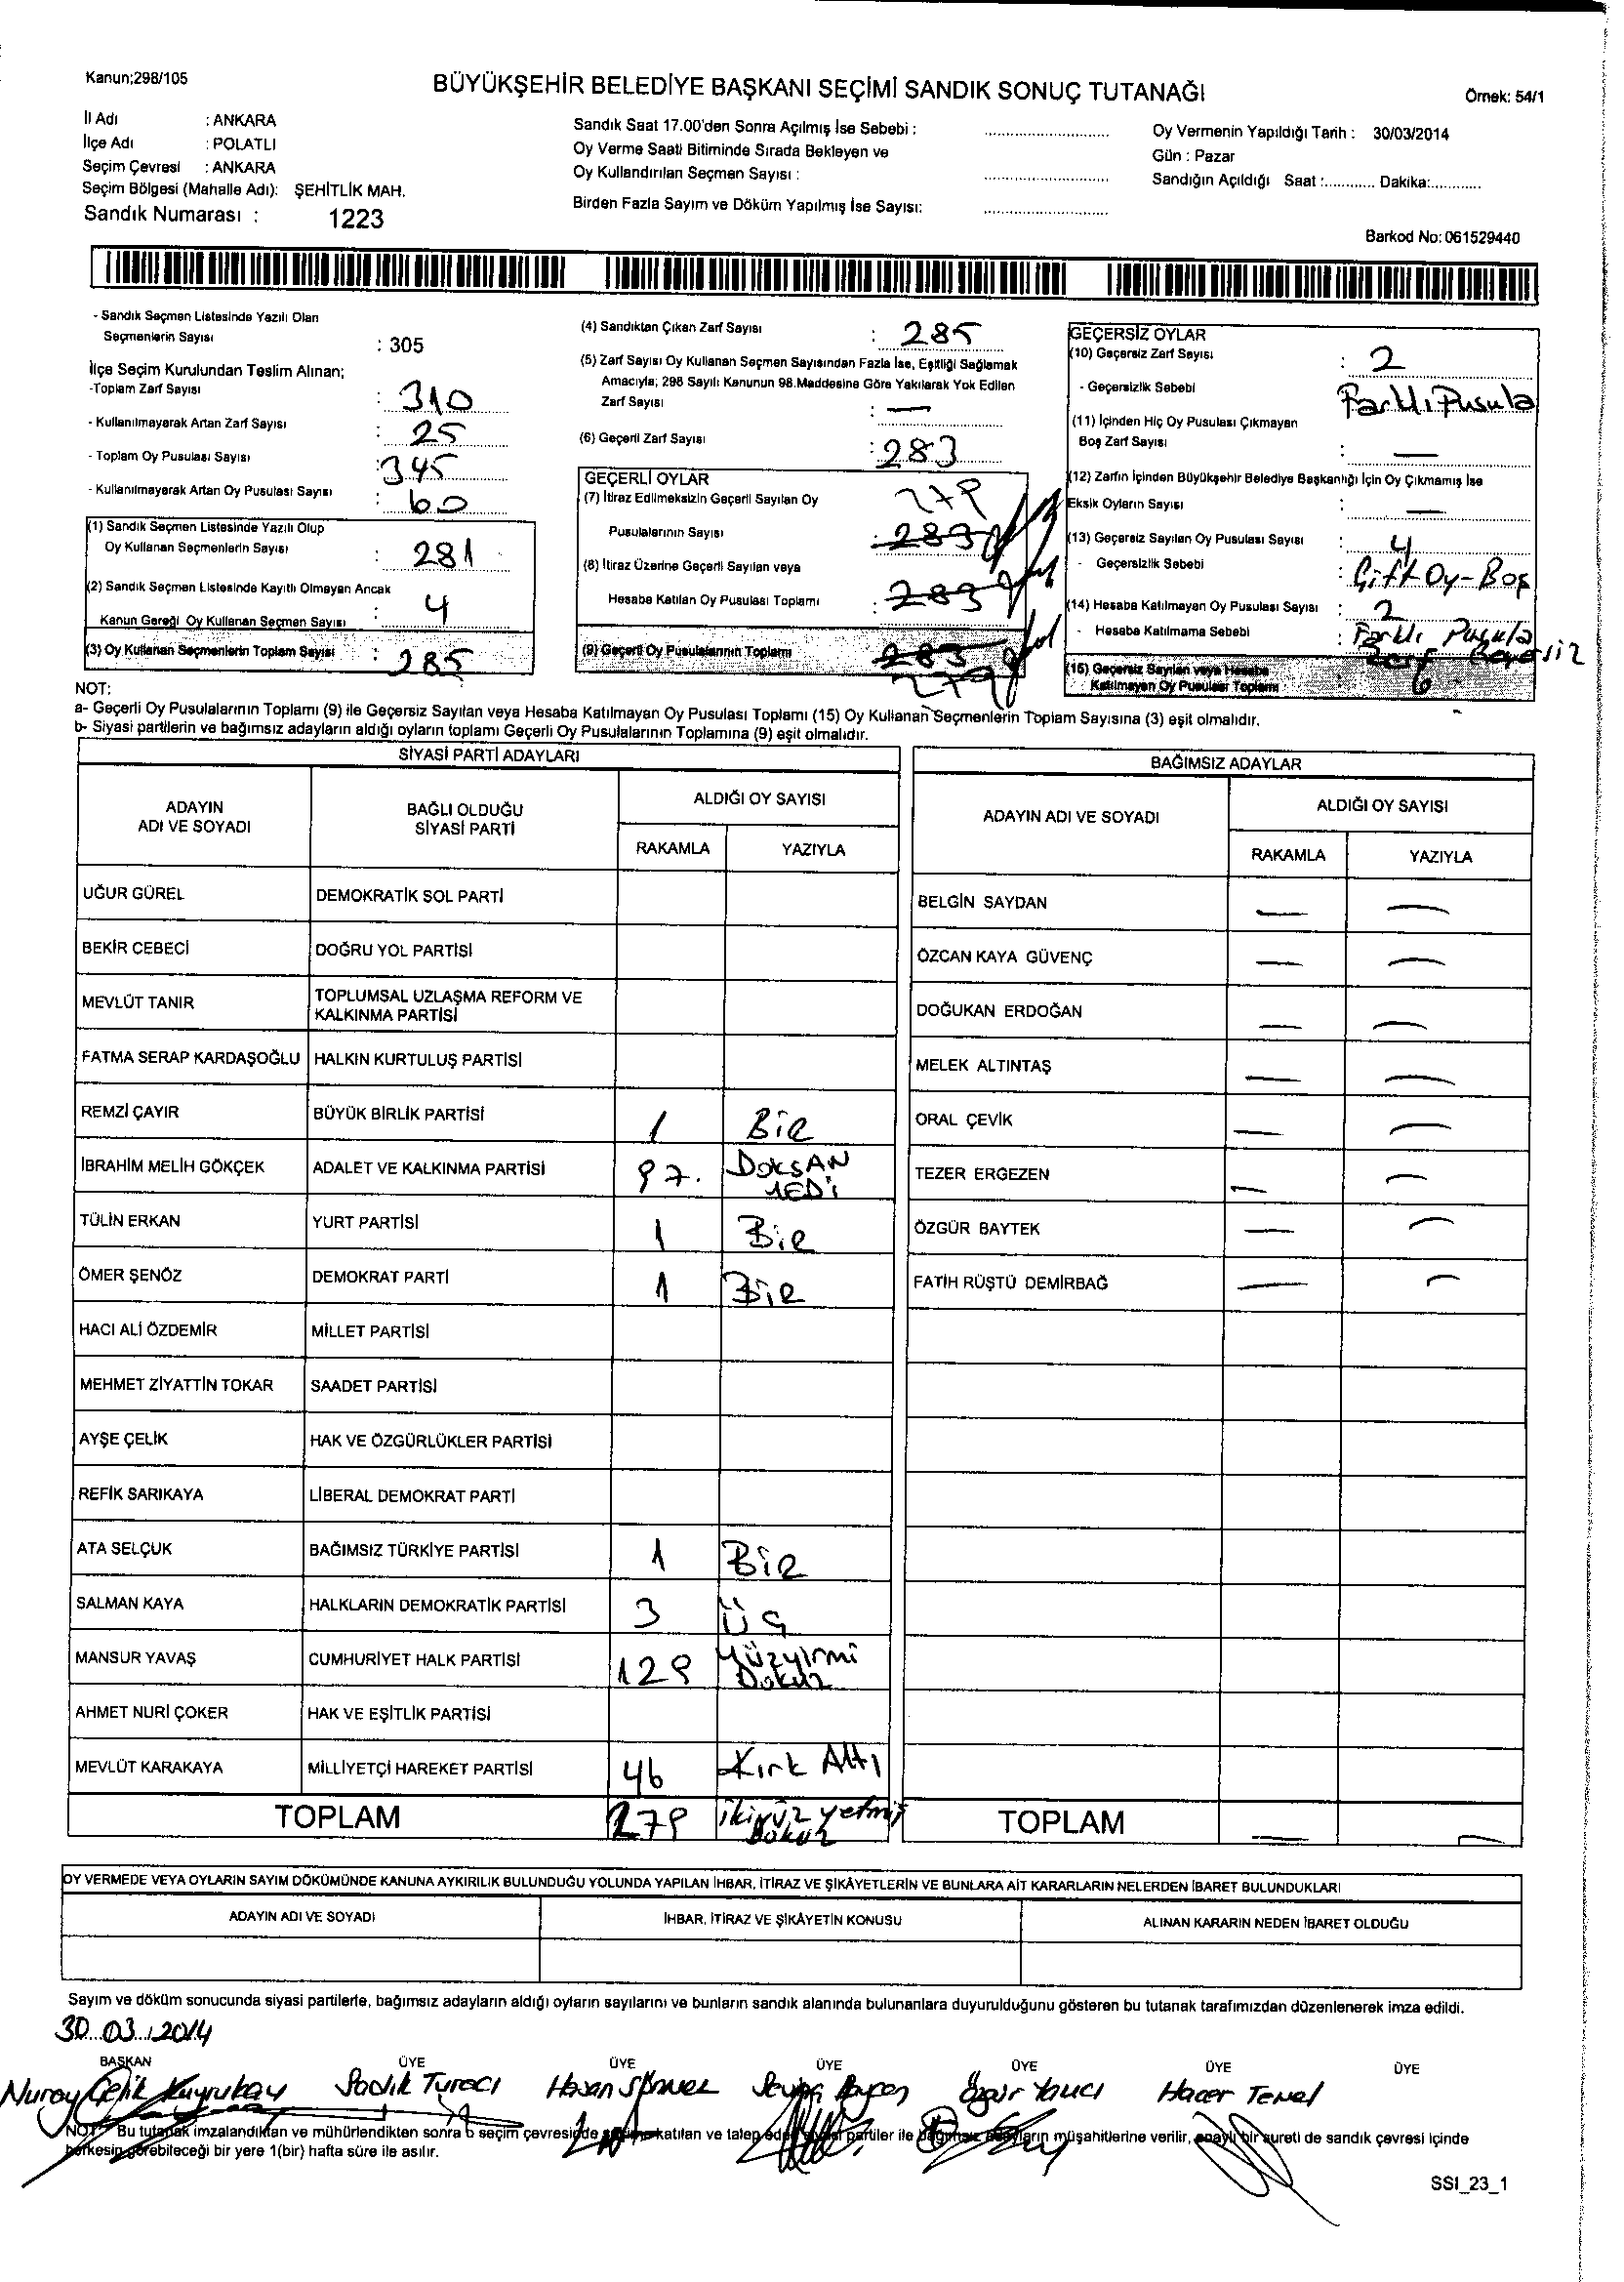 Kanun;298/105
BÜYÜKŞEHİR BELEDİYE BAŞKANI SEÇİMİ SANDIK SONUÇ TUTANAĞI
Örnek: 54/1
İl Adı : ANKARA
İlçe Adı : POLATLI
Seçim Çevresi : ANKARA
Seçim Bölgesi (Mahalle Adı): ŞEHİTLİK MAH.
Sandık Numarası : 1223
Sandık Saat 17.00'den Sonra Açılmış İse Sebebi :
Oy Verme Saati Bitiminde Sırada Bekleyen ve
Oy Kullandırılan Seçmen Sayısı :
Birden Fazla Sayım ve Döküm Yapılmış İse Sayısı:
Oy Vermenin Yapıldığı Tarih : 30/03/2014
Gün : Pazar
Sandığın Açıldığı Saat :............ Dakika:............
Barkod No: 061529440
- Sandık Seçmen Listesinde Yazılı Olan
Seçmenlerin Sayısı : 305
İlçe Seçim Kurulundan Teslim Alınan;
-Toplam Zarf Sayısı : 310
- Kullanılmayarak Artan Zarf Sayısı : 25
- Toplam Oy Pusulası Sayısı : 345
- Kullanılmayarak Artan Oy Pusulası Sayısı : 60
(1) Sandık Seçmen Listesinde Yazılı Olup
Oy Kullanan Seçmenlerin Sayısı : 281
(2) Sandık Seçmen Listesinde Kayıtlı Olmayan Ancak
Kanun Gereği Oy Kullanan Seçmen Sayısı : 4
(3) Oy Kullanan Seçmenlerin Toplam Sayısı : 285
(4) Sandıktan Çıkan Zarf Sayısı : 285
(5) Zarf Sayısı Oy Kullanan Seçmen Sayısından Fazla İse, Eşitliği Sağlamak
Amacıyla; 298 Sayılı Kanunun 98.Maddesine Göre Yakılarak Yok Edilen
Zarf Sayısı : —
(6) Geçerli Zarf Sayısı : 283
GEÇERLİ OYLAR
(7) İtiraz Edilmeksizin Geçerli Sayılan Oy 279
Pusulalarının Sayısı : 283
(8) İtiraz Üzerine Geçerli Sayılan veya
Hesaba Katılan Oy Pusulası Toplamı : 283
(9) Geçerli Oy Pusulalarının Toplamı 283
279
GEÇERSİZ OYLAR
(10) Geçersiz Zarf Sayısı : 2
- Geçersizlik Sebebi : Farklı Pusula
(11) İçinden Hiç Oy Pusulası Çıkmayan
Boş Zarf Sayısı : —
(12) Zarfın İçinden Büyükşehir Belediye Başkanlığı İçin Oy Çıkmamış İse
Eksik Oyların Sayısı : —
(13) Geçersiz Sayılan Oy Pusulası Sayısı : 4
- Geçersizlik Sebebi : Çift Oy-Boş
(14) Hesaba Katılmayan Oy Pusulası Sayısı : 2
- Hesaba Katılmama Sebebi : Farklı Pusula
(15) Geçersiz Sayılan veya Hesaba
Katılmayan Oy Pusulası Toplamı 6
NOT:
a- Geçerli Oy Pusulalarının Toplamı (9) ile Geçersiz Sayılan veya Hesaba Katılmayan Oy Pusulası Toplamı (15) Oy Kullanan Seçmenlerin Toplam Sayısına (3) eşit olmalıdır.
b- Siyasi partilerin ve bağımsız adayların aldığı oyların toplamı Geçerli Oy Pusulalarının Toplamına (9) eşit olmalıdır.
SİYASİ PARTİ ADAYLARI
ADAYIN ADI VE SOYADI
BAĞLI OLDUĞU SİYASİ PARTİ
ALDIĞI OY SAYISI
RAKAMLA YAZIYLA
UĞUR GÜREL DEMOKRATİK SOL PARTİ
BEKİR CEBECİ DOĞRU YOL PARTİSİ
MEVLÜT TANIR TOPLUMSAL UZLAŞMA REFORM VE KALKINMA PARTİSİ
FATMA SERAP KARDAŞOĞLU HALKIN KURTULUŞ PARTİSİ
REMZİ ÇAYIR BÜYÜK BİRLİK PARTİSİ 1 Bir
İBRAHİM MELİH GÖKÇEK ADALET VE KALKINMA PARTİSİ 97. DOKSAN YEDİ
TÜLİN ERKAN YURT PARTİSİ 1 Bir
ÖMER ŞENÖZ DEMOKRAT PARTİ 1 Bir
HACI ALİ ÖZDEMİR MİLLET PARTİSİ
MEHMET ZİYATTİN TOKAR SAADET PARTİSİ
AYŞE ÇELİK HAK VE ÖZGÜRLÜKLER PARTİSİ
REFİK SARIKAYA LİBERAL DEMOKRAT PARTİ
ATA SELÇUK BAĞIMSIZ TÜRKİYE PARTİSİ 1 Bir
SALMAN KAYA HALKLARIN DEMOKRATİK PARTİSİ 3 Üç
MANSUR YAVAŞ CUMHURİYET HALK PARTİSİ 129 Yüzyirmi Dokuz
AHMET NURİ ÇOKER HAK VE EŞİTLİK PARTİSİ
MEVLÜT KARAKAYA MİLLİYETÇİ HAREKET PARTİSİ 46 Kırk Altı
TOPLAM 279 İkiyüz yetmiş Dokuz
BAĞIMSIZ ADAYLAR
ADAYIN ADI VE SOYADI
ALDIĞI OY SAYISI
RAKAMLA YAZIYLA
BELGİN SAYDAN — —
ÖZCAN KAYA GÜVENÇ — —
DOĞUKAN ERDOĞAN — —
MELEK ALTINTAŞ — —
ORAL ÇEVİK — —
TEZER ERGEZEN — —
ÖZGÜR BAYTEK — —
FATİH RÜŞTÜ DEMİRBAĞ — —
TOPLAM — —
OY VERMEDE VEYA OYLARIN SAYIM DÖKÜMÜNDE KANUNA AYKIRILIK BULUNDUĞU YOLUNDA YAPILAN İHBAR, İTİRAZ VE ŞİKÂYETLERİN VE BUNLARA AİT KARARLARIN NELERDEN İBARET BULUNDUKLARI
ADAYIN ADI VE SOYADI
İHBAR, İTİRAZ VE ŞİKÂYETİN KONUSU
ALINAN KARARIN NEDEN İBARET OLDUĞU
Sayım ve döküm sonucunda siyasi partilerle, bağımsız adayların aldığı oyların sayılarını ve bunların sandık alanında bulunanlara duyurulduğunu gösteren bu tutanak tarafımızdan düzenlenerek imza edildi.
30.03.2014
BAŞKAN ÜYE ÜYE ÜYE ÜYE ÜYE ÜYE
Nuray Çelik Kuyrukay Sadık Turacı Hasan Özgür Hacer Temel
NOT: Bu tutanak imzalandıktan ve mühürlendikten sonra o seçim çevresinde seçime katılan ve talep eden siyasi partiler ile bağımsız adayların müşahitlerine verilir, onaylı bir sureti de sandık çevresi içinde
herkesin görebileceği bir yere 1(bir) hafta süre ile asılır.
SSI_23_1